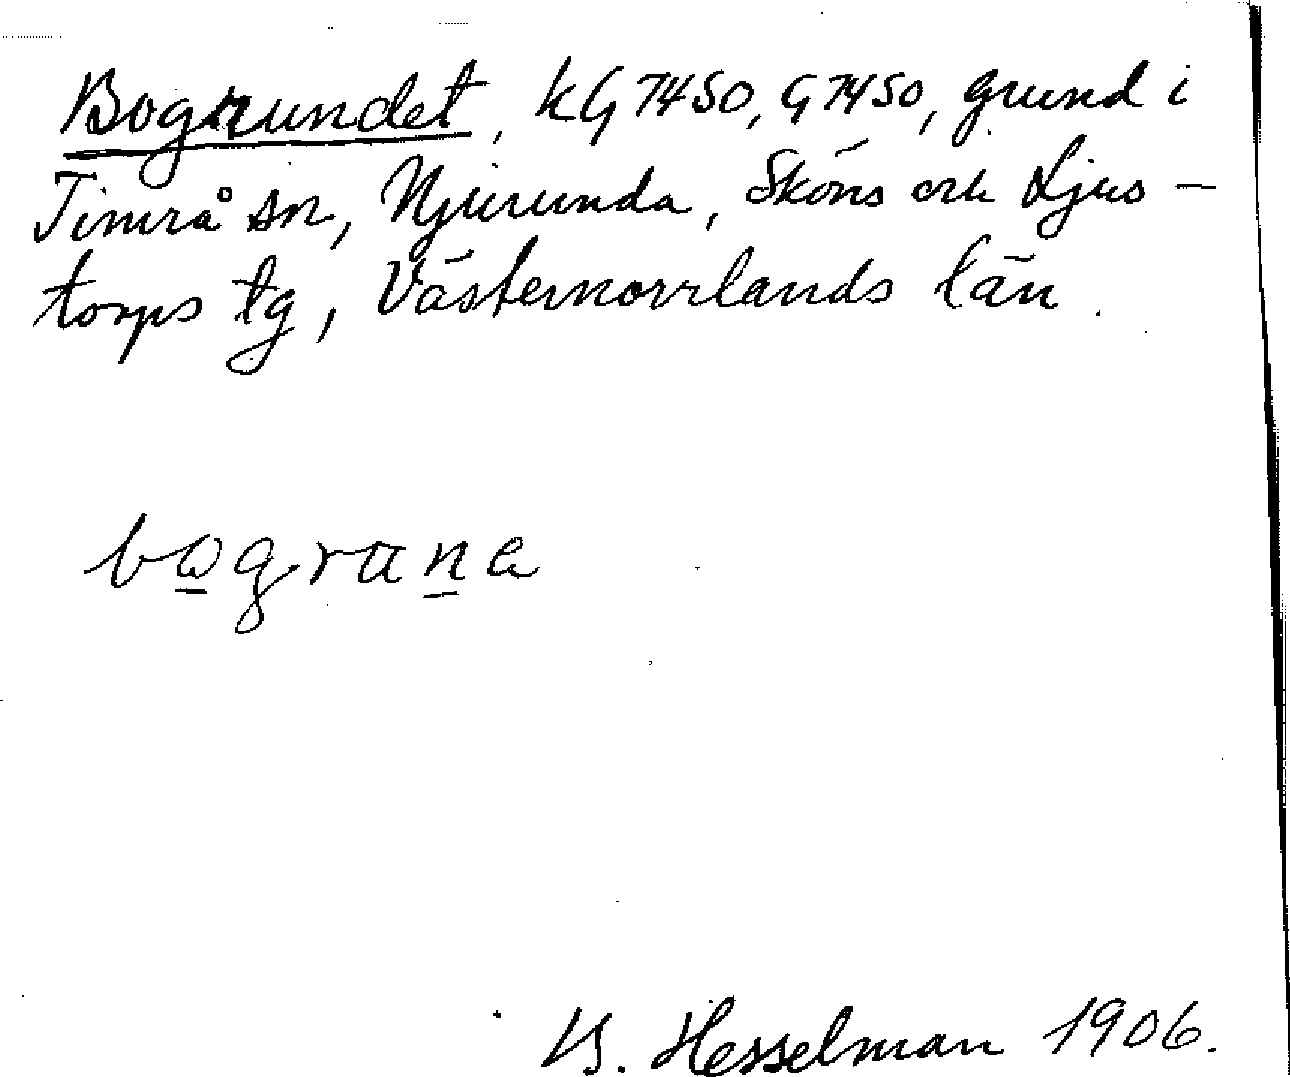 Bogrundet, kG 7450, G 7450, grund i
Timrå sn, Njurunda, Sköns och Ljus-
torps tg, Västernorrlands län.
bograne
B. Hesselman 1906.